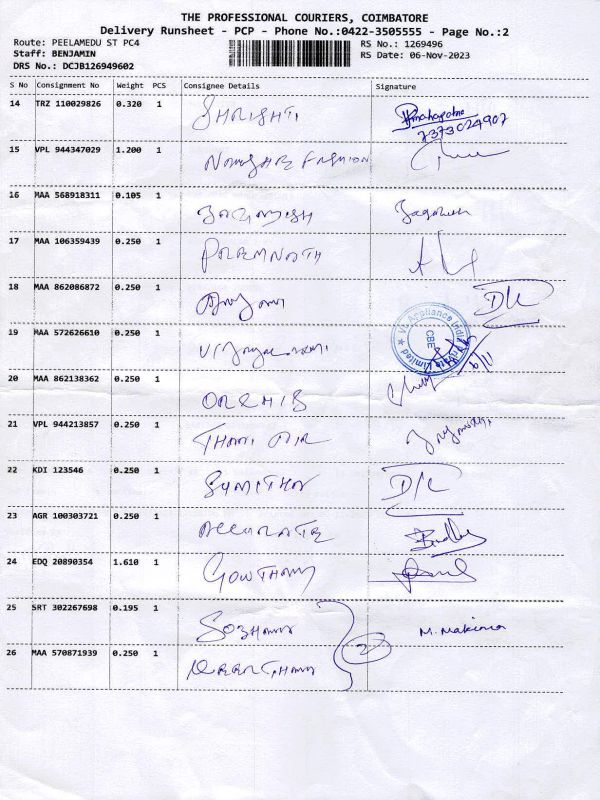 THE PROFESSIONAL COURIERS, COIMBATORE
Delivery Runsheet - PCP - Phone No.:0422-3505555 - Page No.:2
Route: PEELAMEDU ST PC4 RS No.: 1269496
Staff: BENJAMIN RS Date: 06-Nov-2023
DRS No.: DCJB126949602
S No Consignment No Weight PCS Consignee Details Signature
14 TRZ 110029826 0.320 1 SHRISHTI
7373024907
15 VPL 944347029 1.200 1 FASHION
16 MAA 568918311 0.105 1 JAGADISH Jagadish
17 MAA 106359439 0.250 1 PREMNATH
18 MAA 862086872 0.250 1 D/L
19 MAA 572626610 0.250 1
V. Appliance India Private Limited
CBE
20 MAA 862138362 0.250 1 ORCHID
21 VPL 944213857 0.250 1 THAMI AIR
22 KDI 123546 0.250 1 SUMITHA D/L
23 AGR 100303721 0.250 1 ACCURATE
24 EDQ 20890354 1.610 1 GOWTHAM
25 SRT 302267698 0.195 1 SOBHANA M. Makima
2
26 MAA 570871939 0.250 1 KEERTHANA